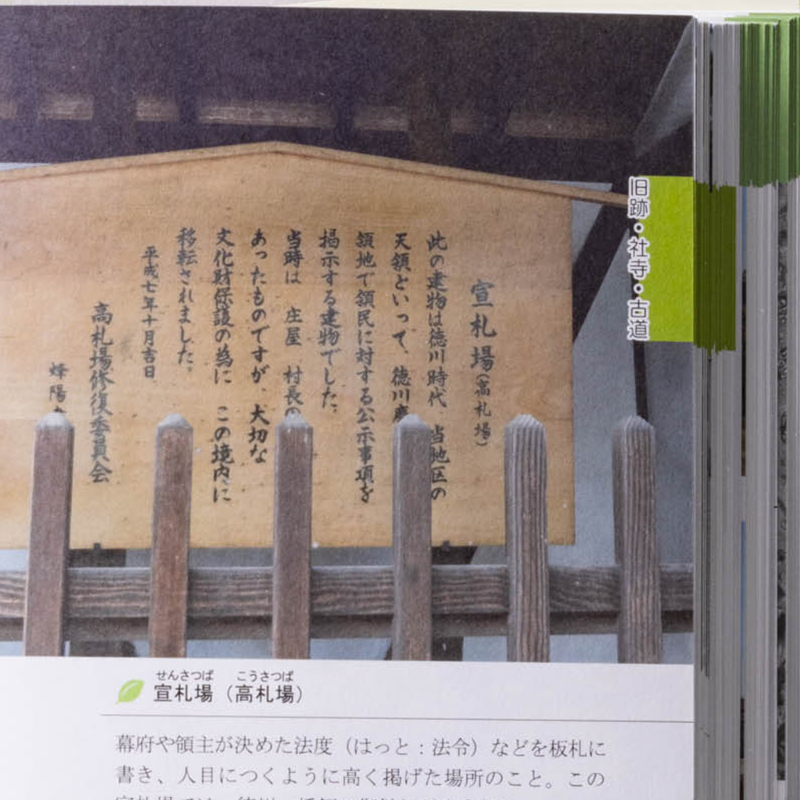 宣札場(高札場)
此の建物は徳川時代 当地区の
天領といって、徳川
領地で領民に対する公示事項を
掲示する建物でした。
当時は 庄屋 村長の
あったものですが、大切な
文化財保護の為に この境内に
移転されました。
平成七年十月吉日
高札場修復委員会
蜂陽
旧跡・社寺・古道
せんさつば こうさつば
宣札場(高札場)
幕府や領主が決めた法度(はっと:法令)などを板札に
書き、人目につくように高く掲げた場所のこと。この